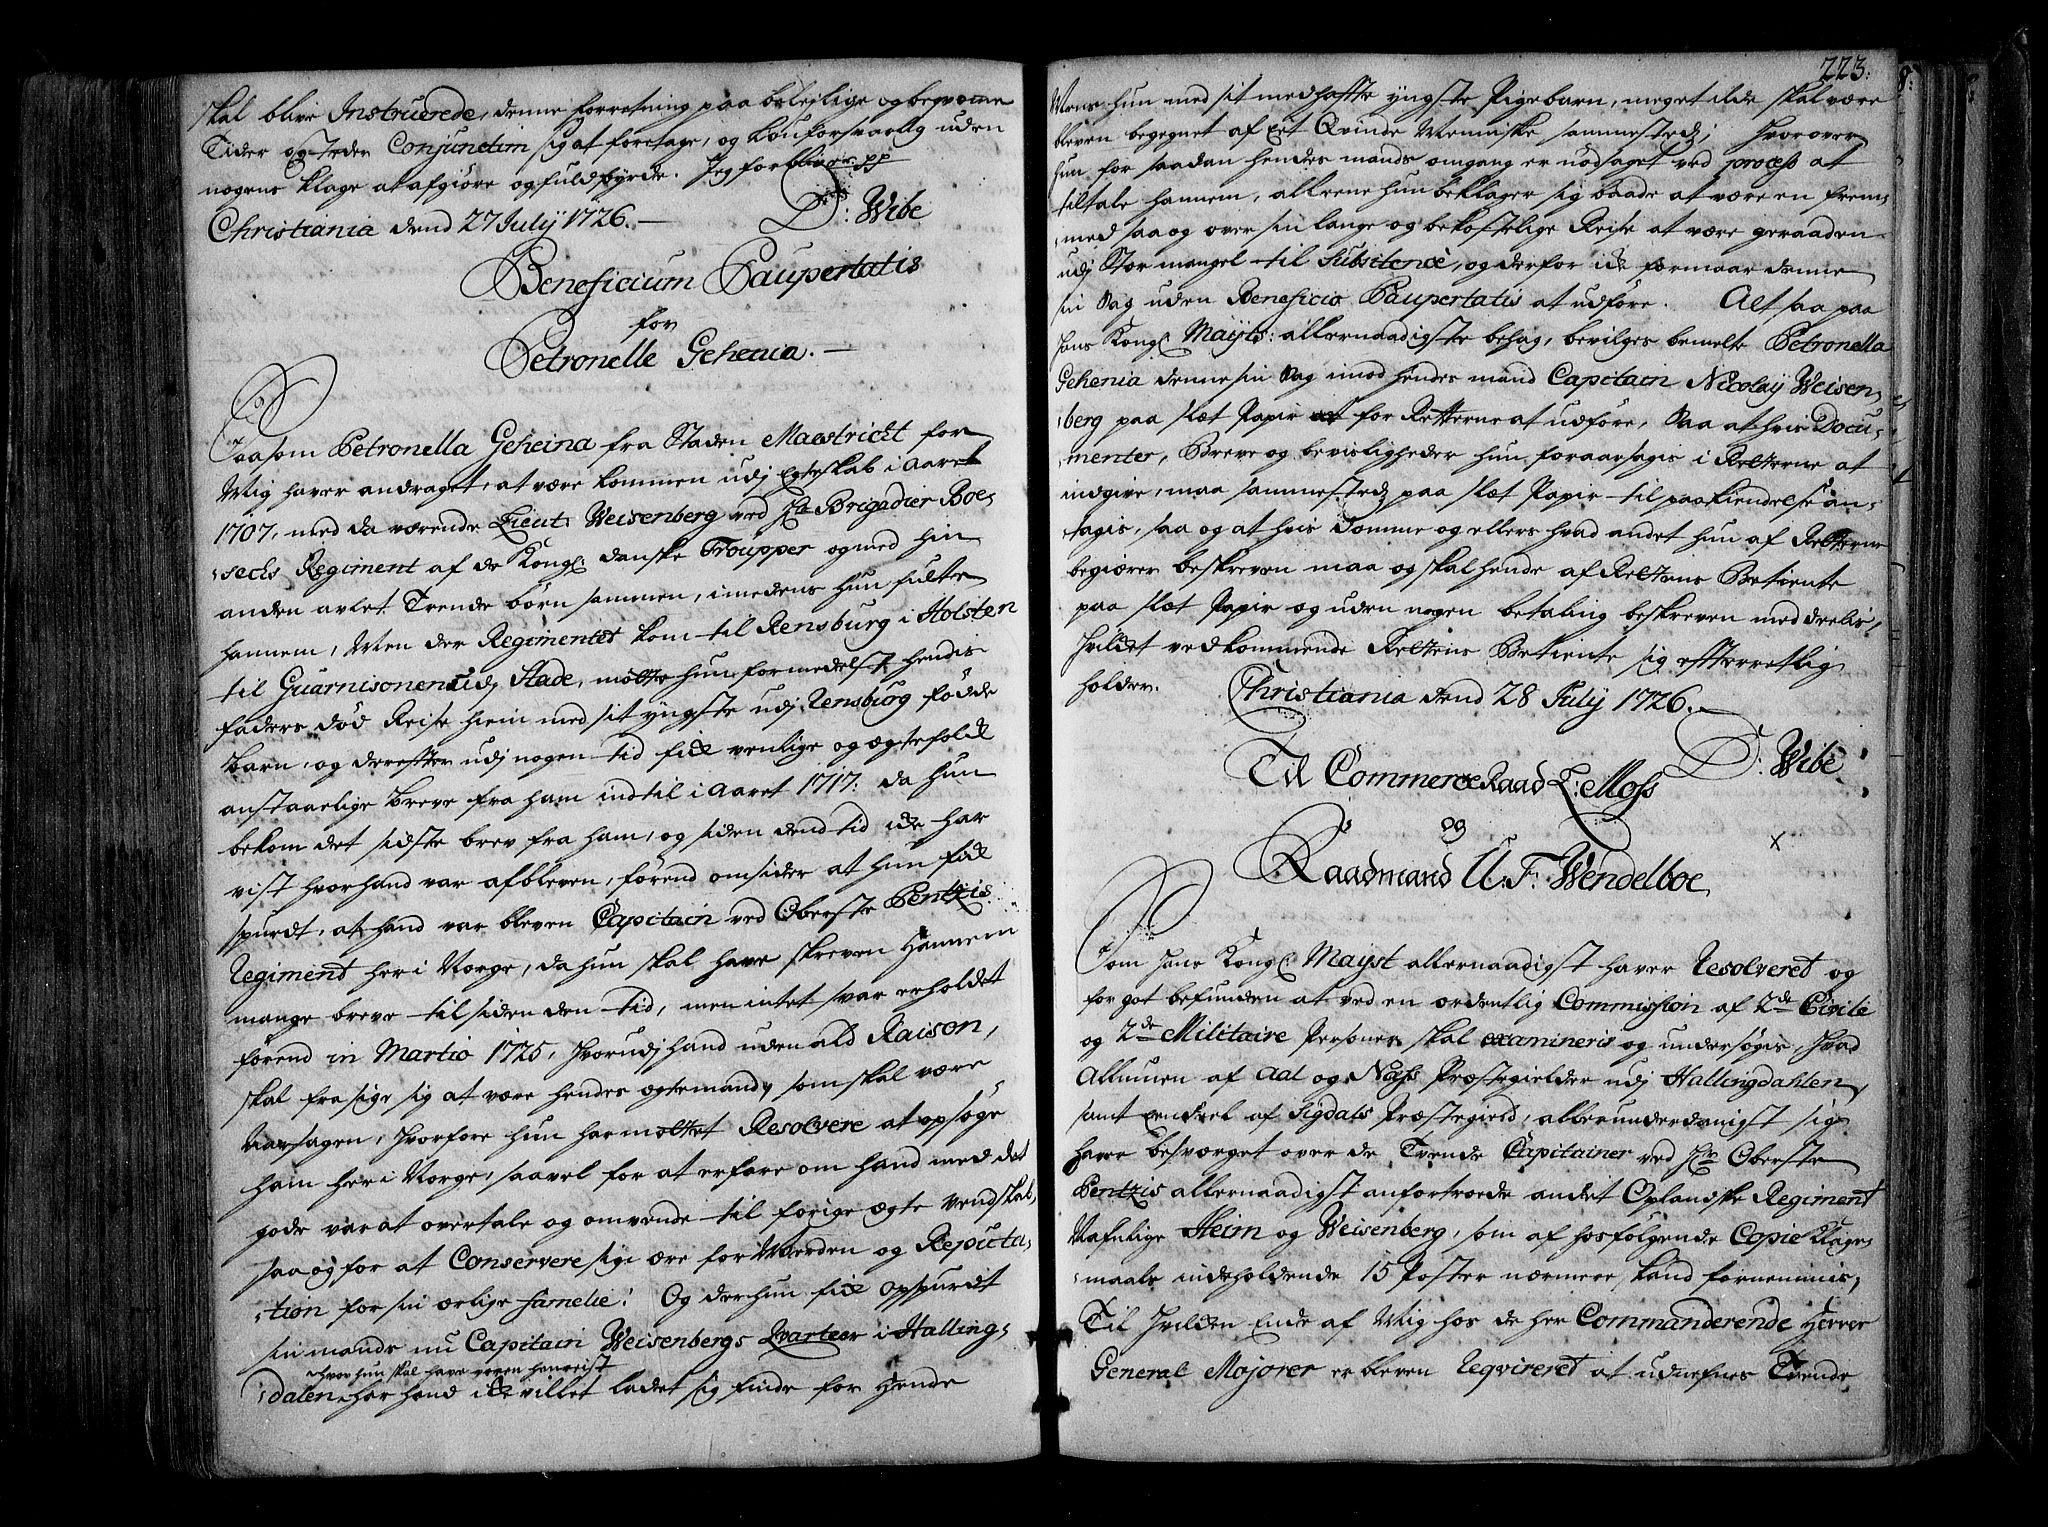 skal blive Instruerede, denne forretning paa beleylige og beqvemme
Tider og steder Conjunctim sig at foretage, og louforsvarlig uden
nogens klage at afgiøre og fuldbyrde. Jeg forbliver pp
Christiania dend 27 Julÿ 1726.— D: Wibe
Beneficium Paupertatis
for
Petronelle Gehenia.—
Saasom Petronella Geheina fra Staden Maestricht for
Mig haver andraget, at være kommen udj Egteskab i Aaret
1707, med da værende Lieut: Weisenberg ved Hr Brigadier Boe-
:sechs Regiment af de Kongl: danske Troupper og med hin
anden avlet Trende børn sammen, imedens hun fulte
hannem, Men der Regimentet kom til Rensburg i Holsten
til Guarnisonen udj Stade, motte hun formedelst hendis
faders død Reise hiem med sit yngste udj Rensburg fødde
Barn, og derefter udj nogen tid fick venlige og ægtefolck
anstaaelige breve fra ham indtil i Aaret 1717: da hun
bekom det sidste brev fra ham, og siden dend tid icke har
vist hvor hand var afbleven, førend omsider at hun fick
spurdt, at hand var bleven Capitain ved Oberste Pentzis
Regiment her i Norge, da hun skal have skreven Hannem
mange breve til siden den tid, men intet svar erholdet
førend in Martio 1725, hvorudj hand uden ald Raison,
skal frasige sig at være hendes ægtemand, som skal være
Aarsagen, hvorfore hun har mottet Resolvere at opsøge
ham her i Norge, saavel for at erfare om hand med det
gode var at overtale og omvende til forige ægte venskab,
saa og for at Conservere sig ære for Verden og Reputa-
:tion for sin ærlige Famelie! Og der hun fick opspurdt
sin mands nu Capitain Weisenbergs Qvarteer i Halling-
hvor hun skal have været henreist
:dalen, har hand icke villet ladet sig finde for Hende
223:
Mens hun med sit medhaffte yngste Pigebarn, meget ilde skal være
bleven begegnet af Eet Qvinde Menniske sammesteds; hvorover
hun for saadan hendes mands omgang er nødsaget ved process at
tiltale hannem, alleene hun beklager sig baade at være en frem-
:med saa og over sin lange og bekostelige Reise at være geraaden
udj Stor mangel til Subsitence, og derfor icke formaar denne
sin Sag uden Beneficio Paupertatis at udføre. Alt saa paa
Hans Kongl: Mayts: allernaadigste behag, bevilges bemelte Petronella
Gehenia denne sin Sag imod hendes mand Capitain Nicolaÿ Weisen-
:berg paa slæt Papir for Retterne at udføre, Saa at hvis Docu-
:menter, Breve og bevisligheder hun foraarsagis i Retterne at
indgive, maa sammesteds paa slæt Papir til paakiendelse an-
:tagis, saa og at hvis Domme og ellers hvad andet hun af Retterne
begiærer beskreven maa og skal hende af Rettens Betiente
paa slæt Papir og uden nogen betaling beskreven meddeelis,
Hvilcket vedkommende Rettens Betiente sig effterretlig
holder. Christiania dend 28 Julÿ 1726.—
D: Wibe
Til CommerceRaad L: Moss
og
Raadmand U. F: Wendelboe,
x
Som Hans Kongl: Mayst allernaadigst haver Resolveret og
for got befunden at ved en ordentlig Commission af 2de Civile
og 2de Militaire Personer skal examineris og undersøgis, hvad
Allmuen af Aal og Næss Præstegielder udj Hallingdahlen,
samt Een deel af Sigdals Præstegield, allerunderdanigst sig
have besværget over de Tvende Capitainer ved Hr Oberste
Pentzis allernaadigst anfortroede andet Oplandske Regiment
Nafnlige Heim og Weisenberg, som af hosfølgende Copie Klage-
:maale indeholdende 15 Poster nærmere kand fornemmis,
Til Hvilcken Ende af Mig hos de her Commanderende Herrer
General Majorer er bleven Reqvireret at udnefnes Tvende